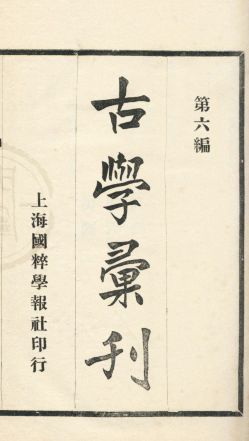 第六編
古學彙刊
上海國粹學報社印行